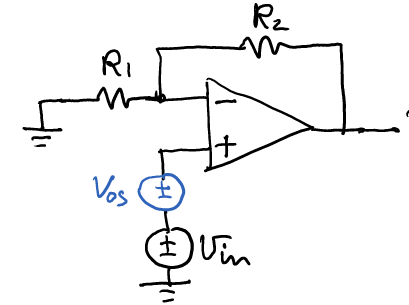 R₂
R₁
−
+
Vos
±
Vin
±